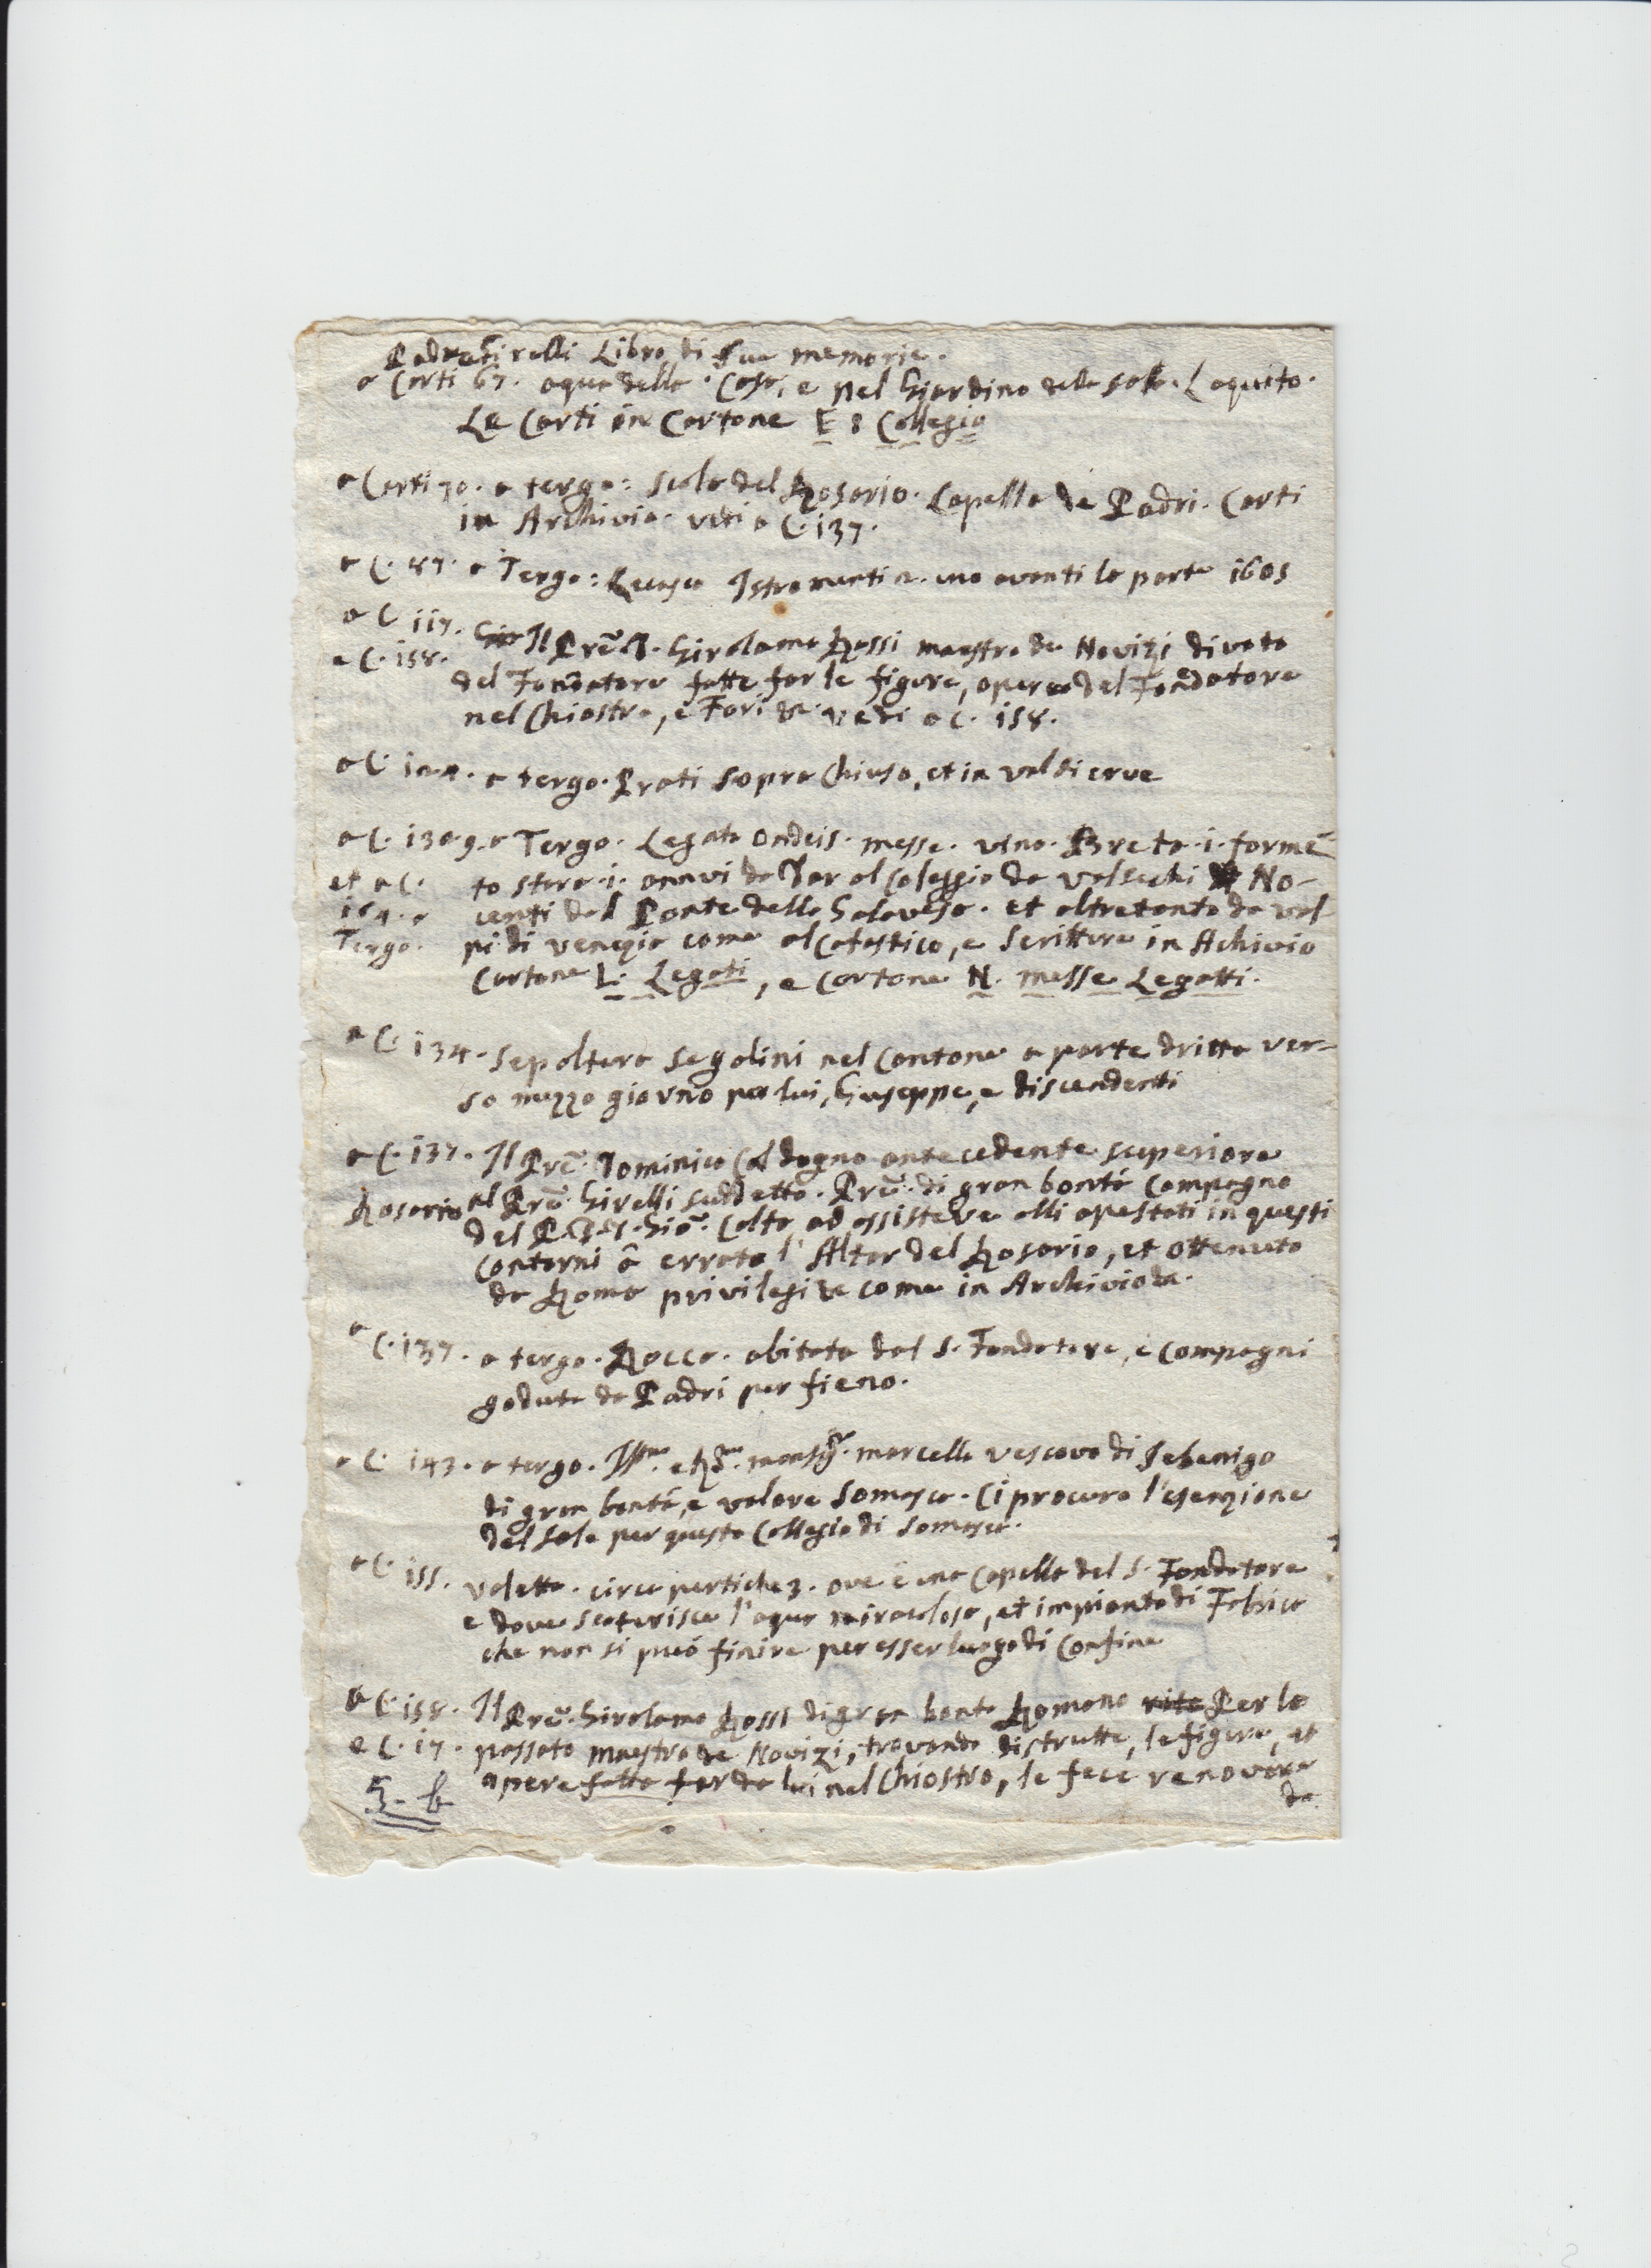 Padre Girelli Libro di sue memorie.
a Carti 67. aqua della Casa, e nel Giardino della
Le Carti in Cartone E 8 Collegio
a Carti 70. a tergo: Scola del Rosario. Capella de Padri. Carti
in Archivio. vedi a C. 137.
a C. 87. a Tergo: Istromenti avanti la porta 1605
a C 117. Il Prē D. Girolamo Rossi maestro de Novizi divoto
e C. 158. del Fondatore fatte far le figure, opere del Fondatore
nel Chiostro, e Fori vedi a C. 158.
a C. a tergo. Prati sopra Chiuso, et in val di erve
a C. 130 a Tergo. Legato Ondeis. messe. vino. Breta. i. formē
et a C. to staro. i. annui da dar al Coleggio da Valsechi No-
a centi dal Ponte della Galavesa. et altretanto da vol-
Tergo. pi di venezia come al Catastico, e Scritture in Achivio
Cartone L. Legati, e Cartone N. messe Legatti.
a C. 134. Sepoltura Segalini nel Cantone a parte dritta ver-
so mezzo giorno per lui, Giuseppe, e discendenti
a C. 137. Il Prē. Dominico Caldogno antecedente superiore
Rosario al Prē. Girelli suddetto. Prē. di gran bontà Compagno
del P. D. Giō. Colta ad assistere alli apestati in questi
contorni à erreto l'Altar del Rosario, et ottenuto
da Roma privilegi come in Archivio
a C. 137. a tergo. Rocca. abitata dal S. Fondatore, e Compagni
goduta da Padri per fieno.
a C. 143. a tergo. Ill.mo e R.mo monsig.r marcello vescovo di Sebenigo
di gran bontà, e valore Somasco. Ci procuro l'esenzione
del sale per questo Collegio di Somasca.
a C. 155. Valetta. circa pertiche 3. ove è una Capella del S. Fondatore
e dove scaturisce l'aqua miracolosa, et impianto di Fabrica
che non si può finire per esser luogo di Confine
a C. 158. Il Prē. Girolamo Rossi di gran bonta Romano Per lo
e C. 17. passato maestro de Novizi, trovando distrutte, le figure, et
opere fatte far da lui nel Chiostro, le fece renovare
da
5-b